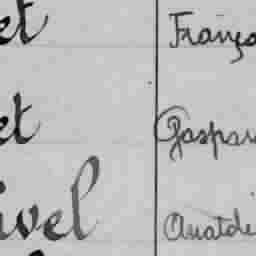 et França
et Gaspar
ivel Anatole